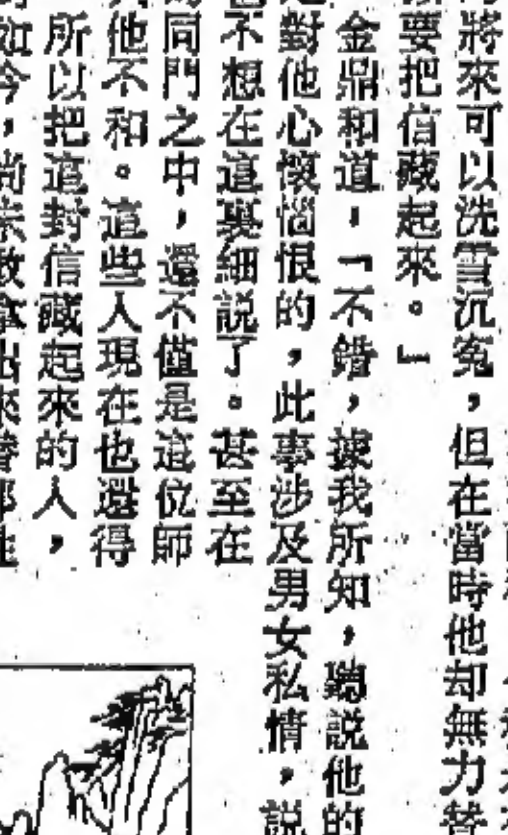 將來可以洗雪沉冤，但在當時他却無力替
要把信藏起來。」
金鼎和道，「不錯，據我所知，聽説他的
對他心懷惱恨的，此事涉及男女私情，説
不想在這裏細説了。甚至在
同門之中，還不僅是這位師
他不和。這些人現在也還得
所以把這封信藏起來的人，
如今，尚未敢拿出來替